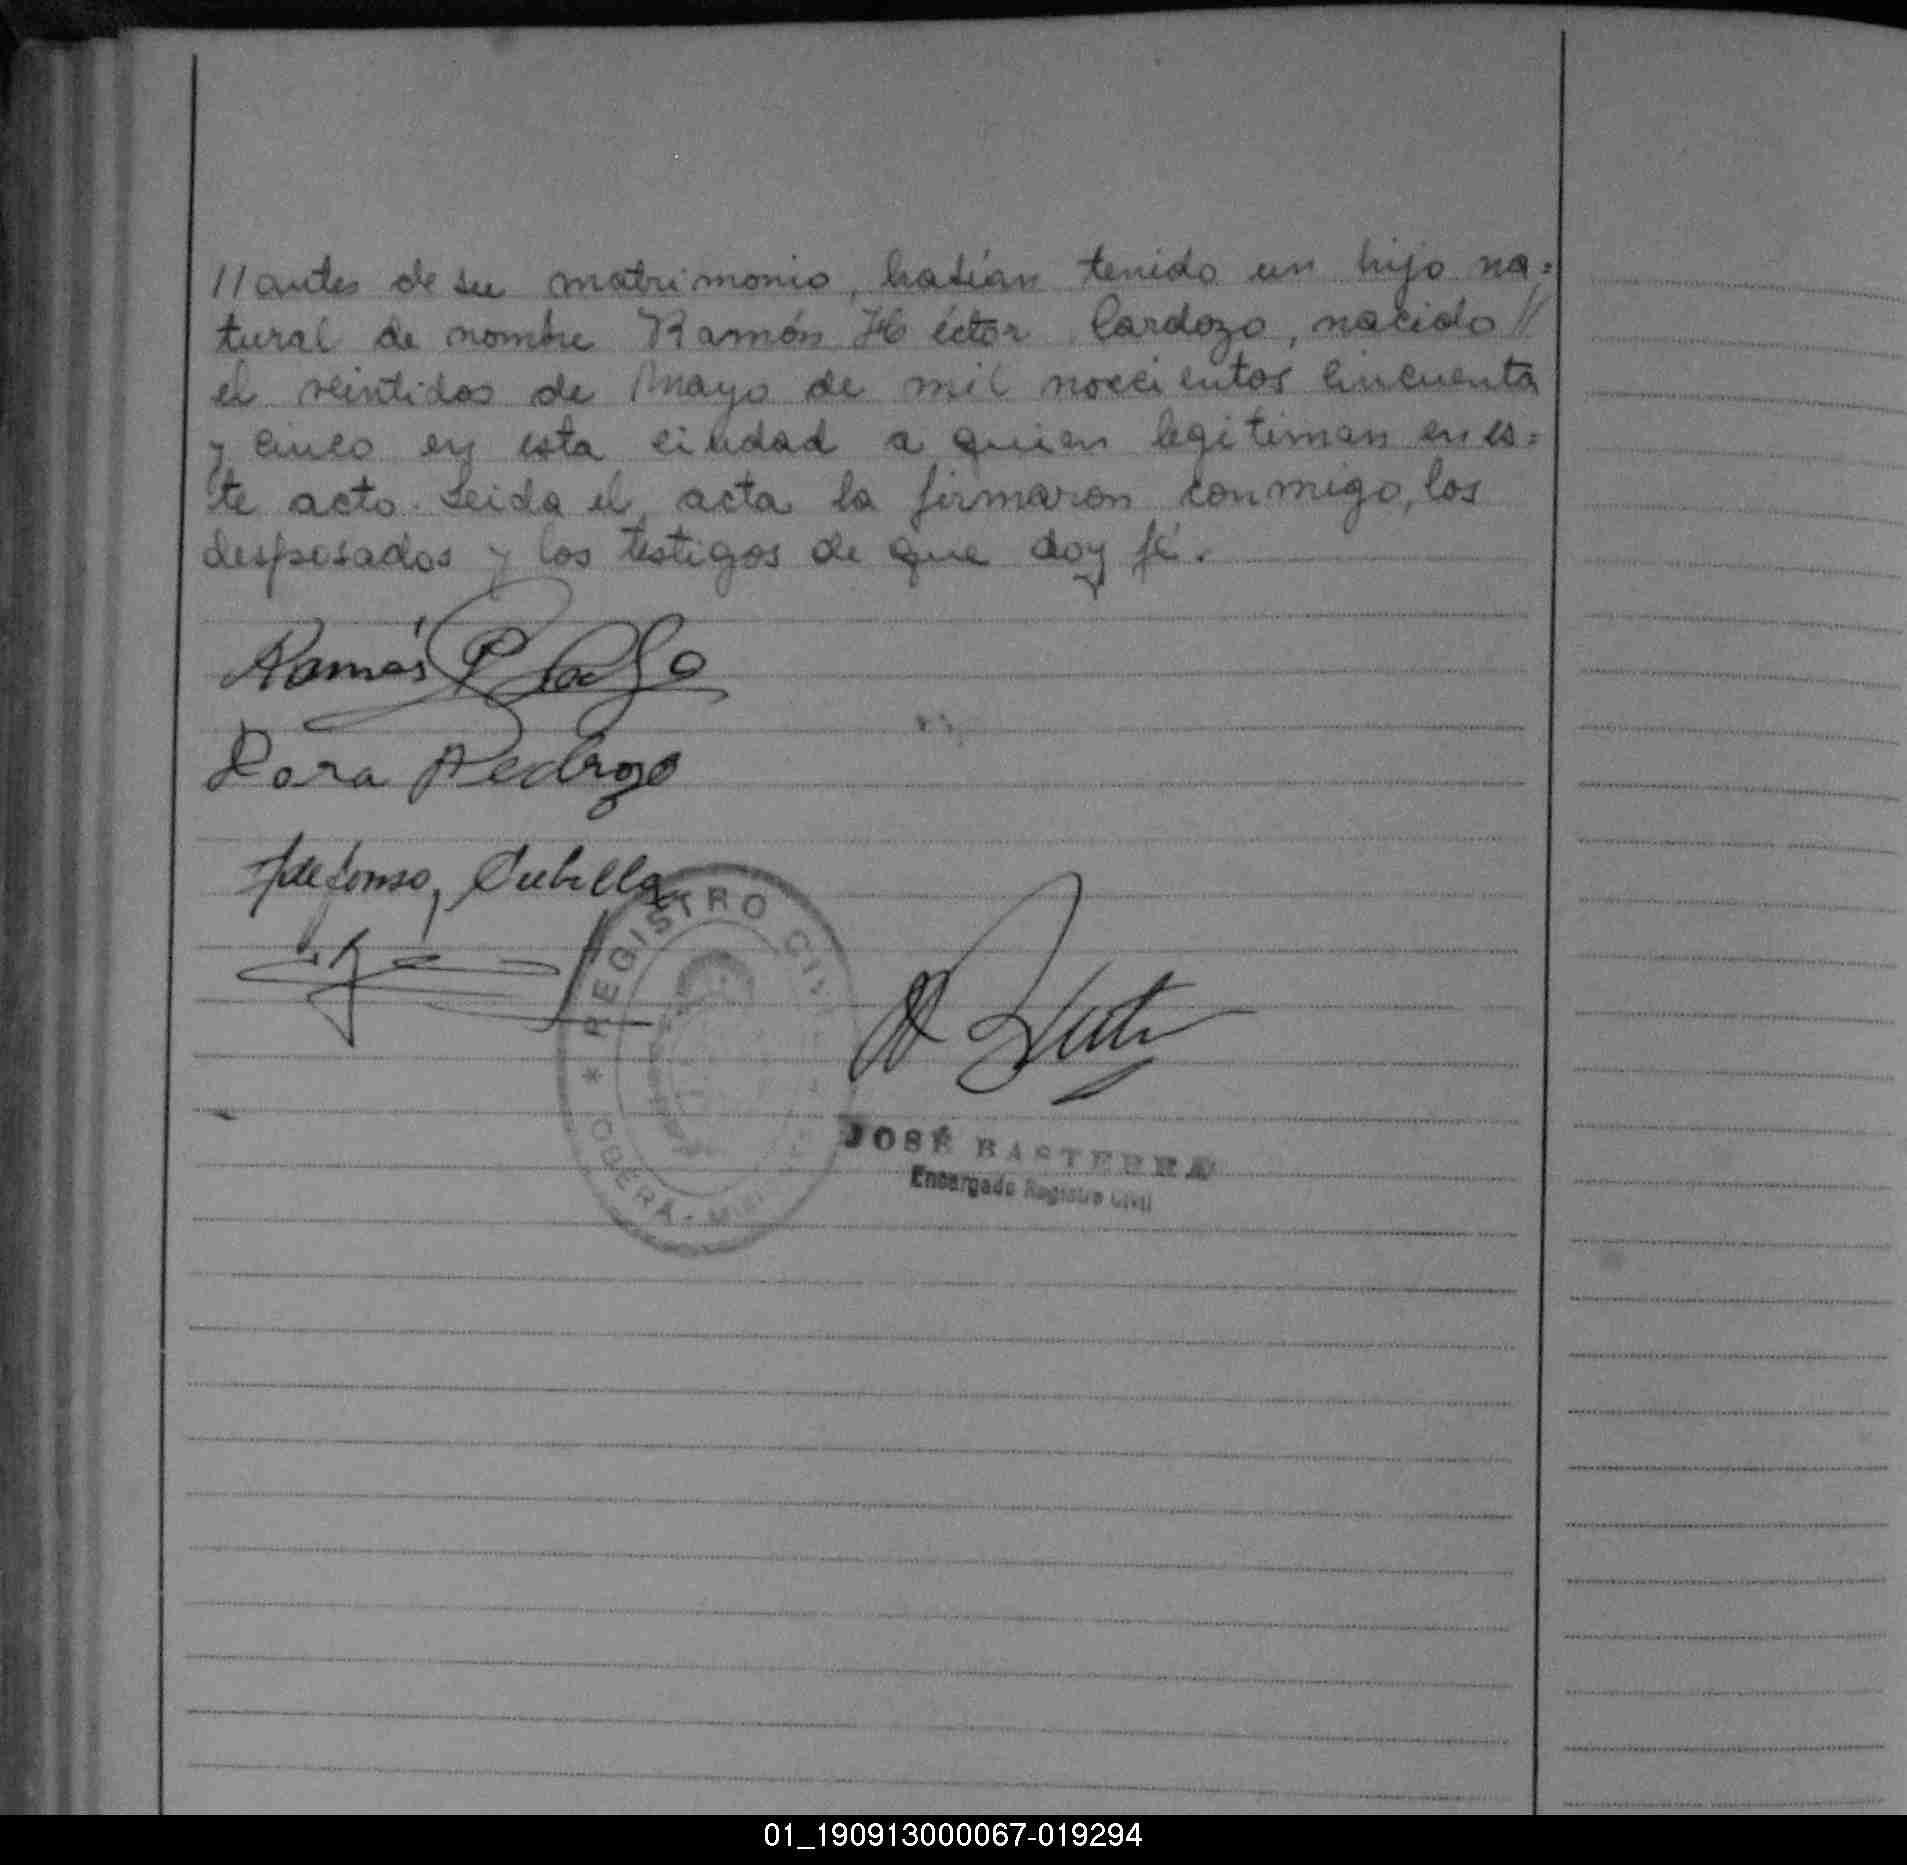 // antes de su matrimonio, habían tenido un hijo na=
tural de nombre Ramón Héctor Cardozo, nacido //
el veintidos de Mayo de mil novecientos cincuenta
y cinco en esta ciudad a quien legitiman en es=
te acto. Leida el acta la firmaron conmigo, los
desposados y los testigos de que doy fé.
Ramón
Dora Pedrozo
Ildefonso, Cubilla
REGISTRO CIVIL
* OBERÁ - MISI
JOSÉ BASTERRA
Encargado Registro Civil
01_190913000067-019294